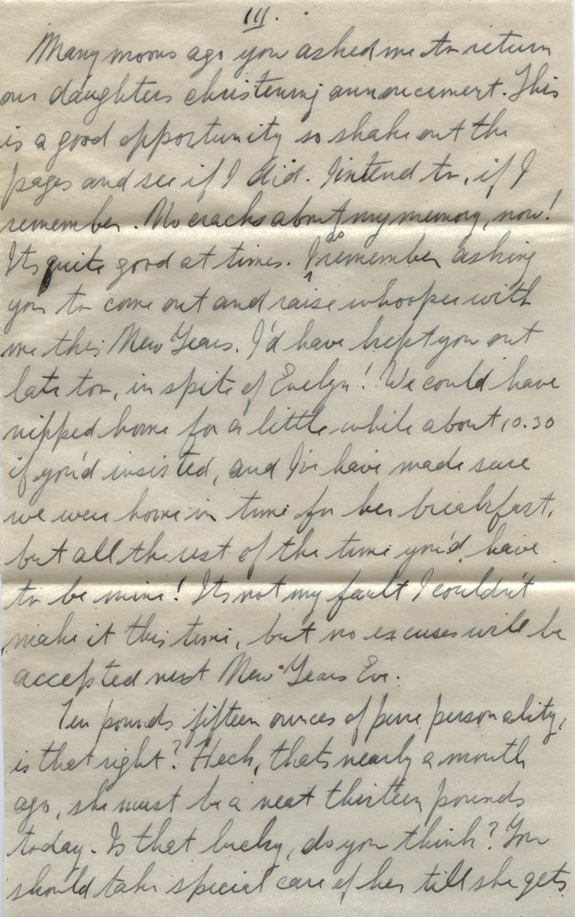 III.
Many moons ago you asked me to return
our daughters christening announcement. This
is a good opportunity so shake out the
pages and see if I did. I intend to, if I
remember. No cracks about my memory, now!
Its quite good at times. I do remember asking
you to come out and raise whoopee with
me this New Years. I'd have kept you out
late too, in spite of Evelyn! We could have
nipped home for a little while about 10.30
if you'd insisted, and I'd have made sure
we were home in time for her breakfast,
but all the rest of the time you'd have
to be mine! Its not my fault I couldn't
make it this time, but no excuses will be
accepted next New Years Eve.
Ten pounds fifteen ounces of pure personality,
is that right? Heck, thats nearly a month
ago, she must be a neat thirteen pounds
today. Is that lucky, do you think? You
should take special care of her till she gets